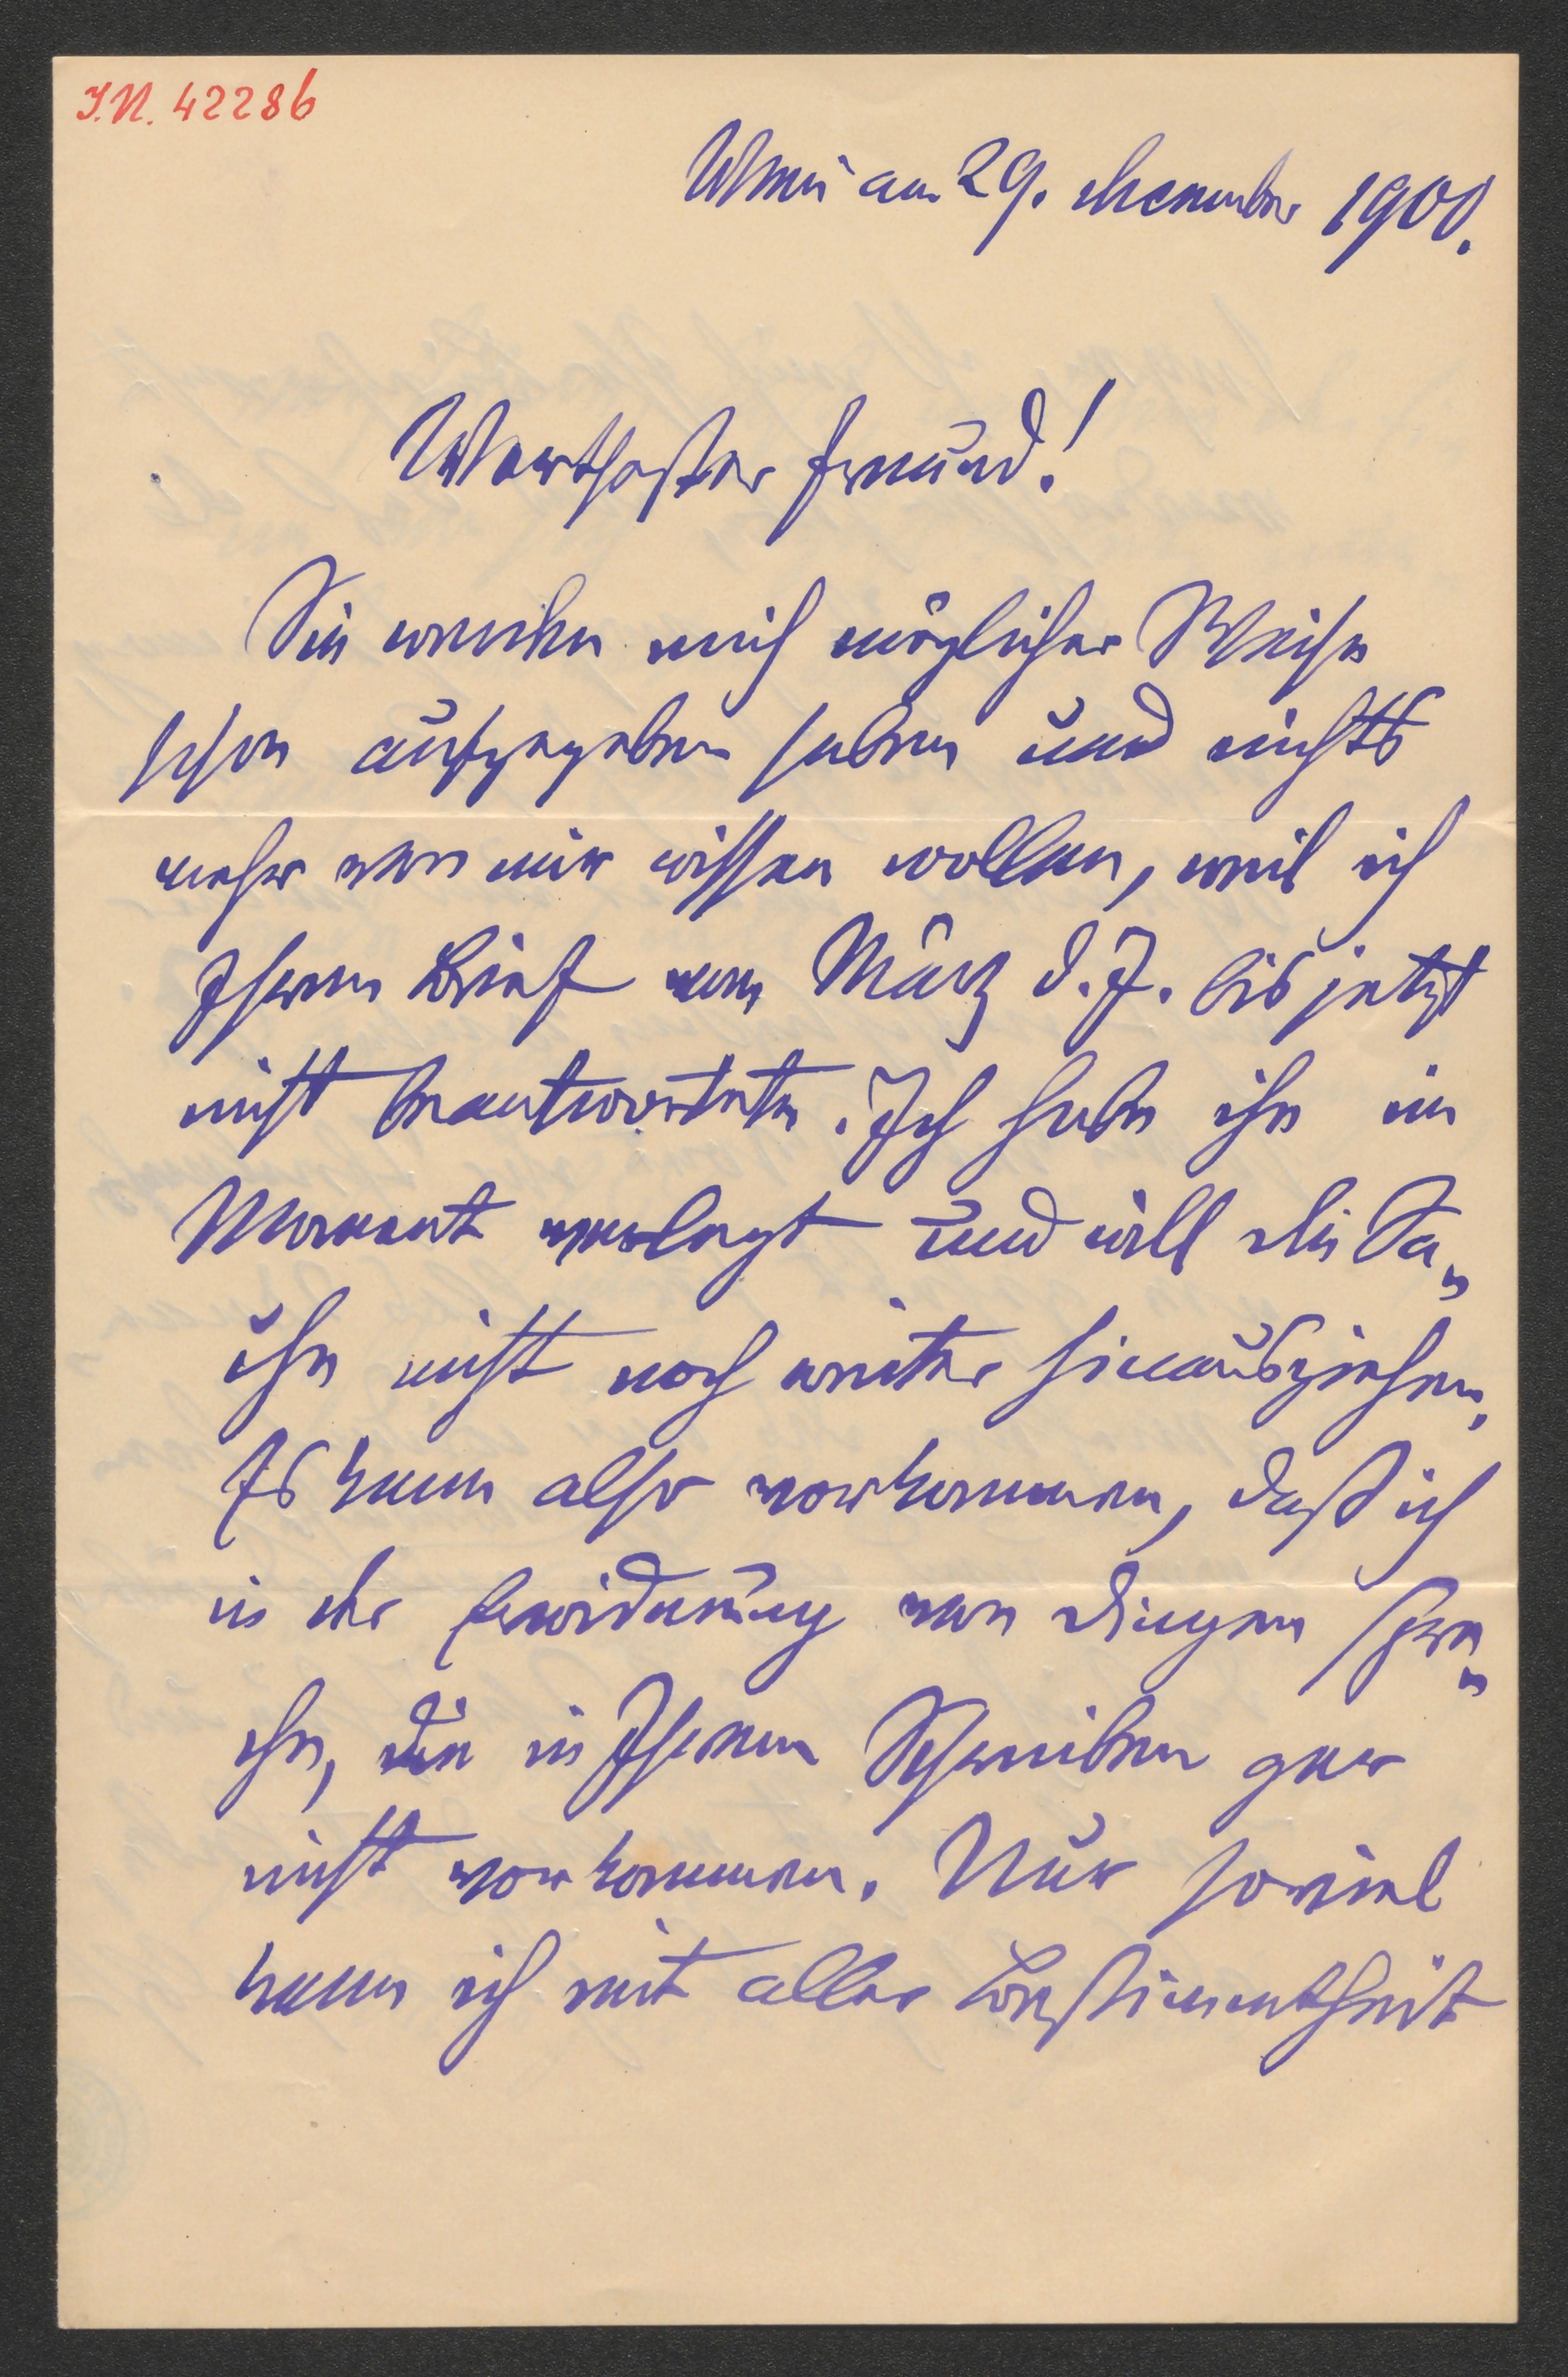 I.N. 42286
Wien am 29. December 1900.
Werthester Freund!
Sie werden mich möglicher Weise
schon aufgegeben haben und nichts
mehr von mir wissen wollen, weil ich
Ihren Brief vom März d. J. bis jetzt
nicht beantwortete. Ich habe ihn im
Moment verlegt und will die Sa„
che nicht noch weiter hinausziehen.
Es kann also vorkommen, daß ich
in der Erwiderung von Dingen spre„
che, die in Ihrem Schreiben gar
nicht vorkommen. Nur soviel
kann ich mit aller Bestimmtheit